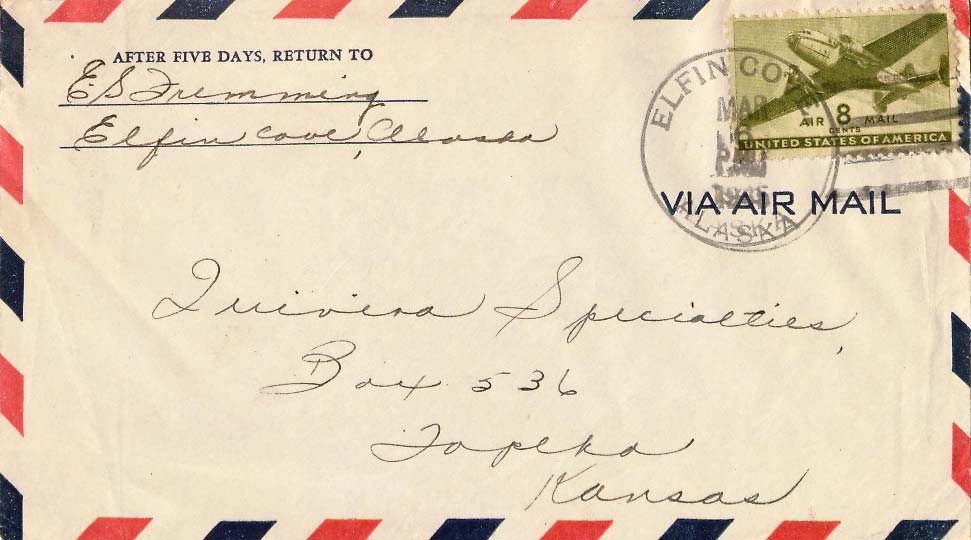 AFTER FIVE DAYS, RETURN TO
E.S. Fremming
Elfin Cove, Alaska
ELFIN COVE
MAR
6
PM
ALASKA
AIR 8 MAIL
CENTS
UNITED STATES OF AMERICA
VIA AIR MAIL
Quivera Specialties,
Box 536
Topeka
Kansas